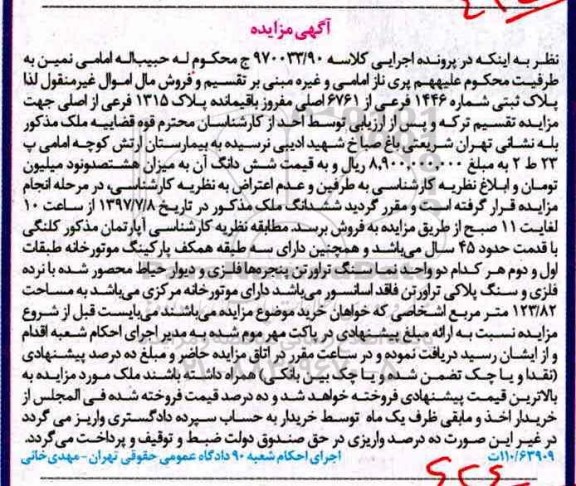 آگهی مزایده
نظر به اینکه در پرونده اجرایی کلاسه ۹۷۰۰۳۳/۹۰ ج محکوم له حبیب‌اله امامی نمین به
طرفیت محکوم علیههم پری ناز امامی و غیره مبنی بر تقسیم و فروش مال اموال غیرمنقول لذا
پلاک ثبتی شماره ۱۴۴۶ فرعی از ۶۷۶۱ اصلی مفروز باقیمانده پلاک ۱۳۱۵ فرعی از اصلی جهت
مزایده تقسیم ترکه و پس از ارزیابی توسط احد از کارشناسان محترم قوه قضاییه ملک مذکور
بله نشانی تهران شریعتی باغ صباغ شهید ادیبی نرسیده به بیمارستان ارتش کوچه امامی پ
۲۳ ط ۲ به مبلغ ۸,۹۰۰,۰۰۰,۰۰۰ ریال و به قیمت شش دانگ آن به میزان هشتصدونود میلیون
تومان و ابلاغ نظریه کارشناسی به طرفین و عدم اعتراض به نظریه کارشناسی، در مرحله انجام
مزایده قرار گرفته است و مقرر گردید ششدانگ ملک مذکور در تاریخ ۱۳۹۷/۷/۸ از ساعت ۱۰
لغایت ۱۱ صبح از طریق مزایده به فروش برسد. مطابقه نظریه کارشناسی آپارتمان مذکور کلنگی
با قدمت حدود ۴۵ سال می‌باشد و همچنین دارای سه طبقه همکف پارکینگ موتورخانه طبقات
اول و دوم هر کدام دو واحد نما سنگ تراورتن پنجره‌ها فلزی و دیوار حیاط محصور شده با نرده
فلزی و سنگ پلاکی تراورتن فاقد اسانسور می‌باشد دارای موتورخانه مرکزی می‌باشد به مساحت
۱۲۳/۸۲ متر مربع اشخاصی که خواهان خرید موضوع مزایده می‌باشند می‌بایست قبل از شروع
مزایده نسبت به ارائه مبلغ پیشنهادی در پاکت مهر موم شده به مدیر اجرای احکام شعبه اقدام
و از ایشان رسید دریافت نموده و در ساعت مقرر در اتاق مزایده حاضر و مبلغ ده درصد پیشنهادی
(نقدا و یا چک تضمن شده و یا چک بین بانکی) همراه داشته باشند ملک مورد مزایده به
بالاترین قیمت پیشنهادی فروخته خواهد شد و ده درصد قیمت فروخته شده فی المجلس از
خریدار اخذ و مابقی ظرف یک ماه توسط خریدار به حساب سپرده دادگستری واریز می گردد
در غیر این صورت ده درصد واریزی در حق صندوق دولت ضبط و توقیف و پرداخت می‌گردد.
۱۱۰/۶۳۹۰۹ت اجرای احکام شعبه ۹۰ دادگاه عمومی حقوقی تهران - مهدی خانی